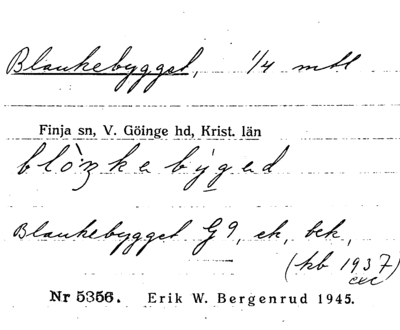 Blankebygget, 1/4 mtl
Finja sn, V. Göinge hd, Krist. län
blòŋkebýged
Blankebygget G9, ek, bek,
(kb 1937)
Nr 5356. Erik W. Bergenrud 1945.